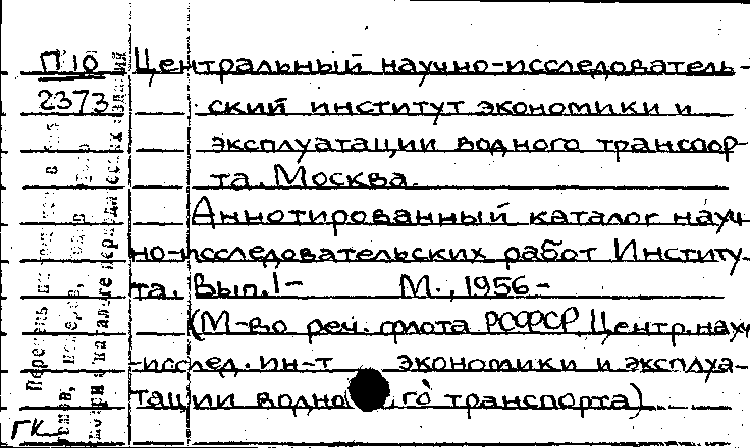 П10 Центральный научно-исследователь-
2373 ский институт экономики и
эксплуатации водного транспор-
та. Москва.
Аннотированный каталог науч-
но-исследовательских работ Институ-
та. Вып.1- М., 1956.-
(М-во реч. флота РСФСР. Центр. науч.
-исслед. ин-т экономики и эксплуа-
тации водного транспорта)
ГК